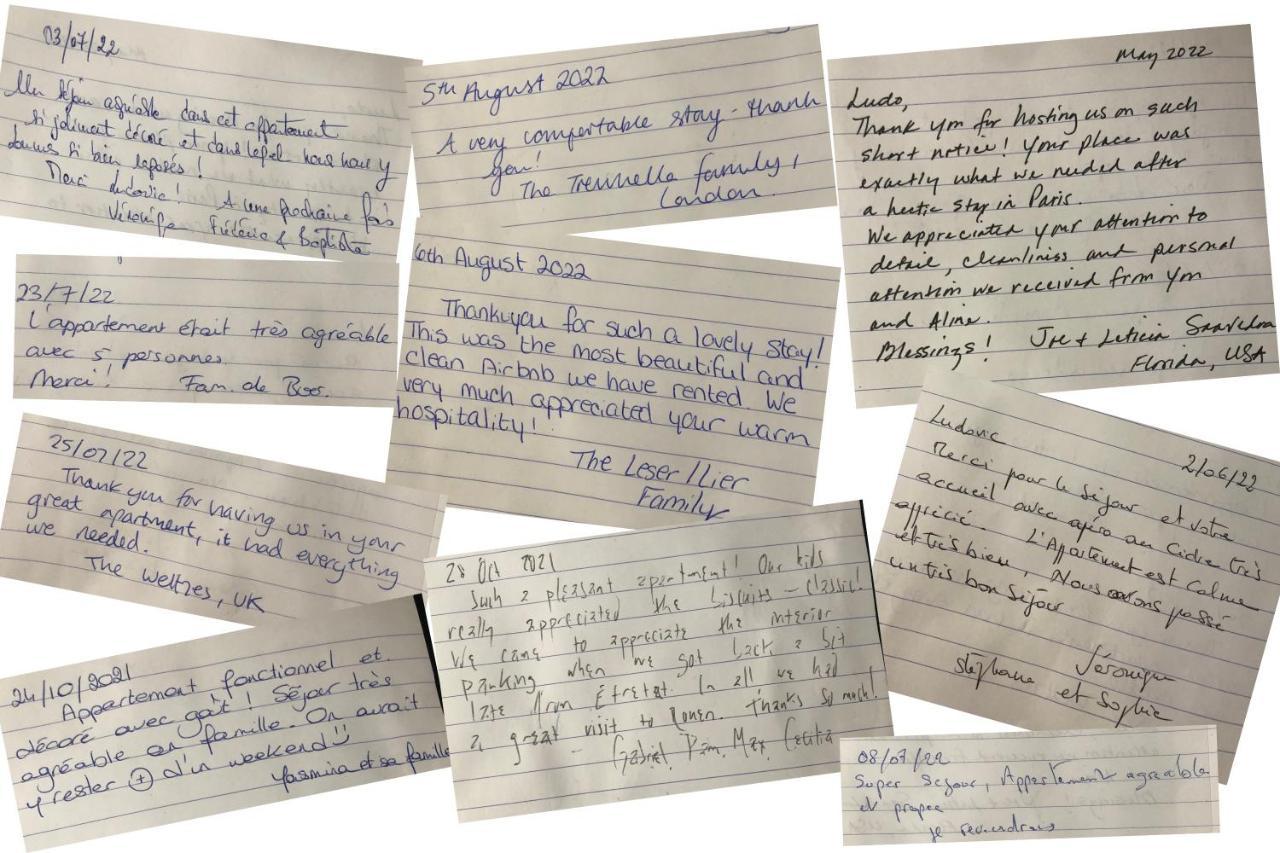 03/07/22
Un séjour agréable dans cet appartement
si joliment décoré et dans lequel nous nous y
sommes si bien reposés !
Merci Ludovic ! A une prochaine fois
Véronique Frédéric & Baptiste
23/7/22
L'appartement était très agréable
avec 5 personnes
Merci! Fam. de Boos.
25/07/22
Thank you for having us in your
great apartment, it had everything
we needed.
The Welthes, UK
24/10/2021
Appartement fonctionnel et
décoré avec goût ! Séjour très
agréable en famille. On aurait
y rester + d'un weekend
Yasmina et sa famille
5th August 2022
A very comfortable stay - thank
you!
The family,
London.
6th August 2022
Thankyou for such a lovely stay!
This was the most beautiful and
clean Airbnb we have rented. We
very much appreciated your warm
hospitality!
The Leser/Lier
Family
28 Oct 2021
Such a pleasant apartment! Our kids
really appreciated the biscuits - classic!
We came to appreciate the interior
parking when we got back a bit
late from Étretat. In all we had
a great visit to Rouen. Thanks so much!
- Gabriel, Pam, Max,
May 2022
Ludo,
Thank you for hosting us on such
short notice! Your place was
exactly what we needed after
a hectic stay in Paris.
We appreciated your attention to
detail, cleanliness and personal
attention we received from you
and Aline.
Blessings! Joe & Leticia Saavedra
Florida, USA
Ludovic
2/06/22
Merci pour le séjour et votre
accueil avec apéro au cidre très
apprécié. L'Appartement est calme
et très bien, Nous avons passé
un très bon séjour
Véronique
Stéphane et Sophie
08/07/22
Super Sejour, Appartement agreable
et propre
je reviendrais